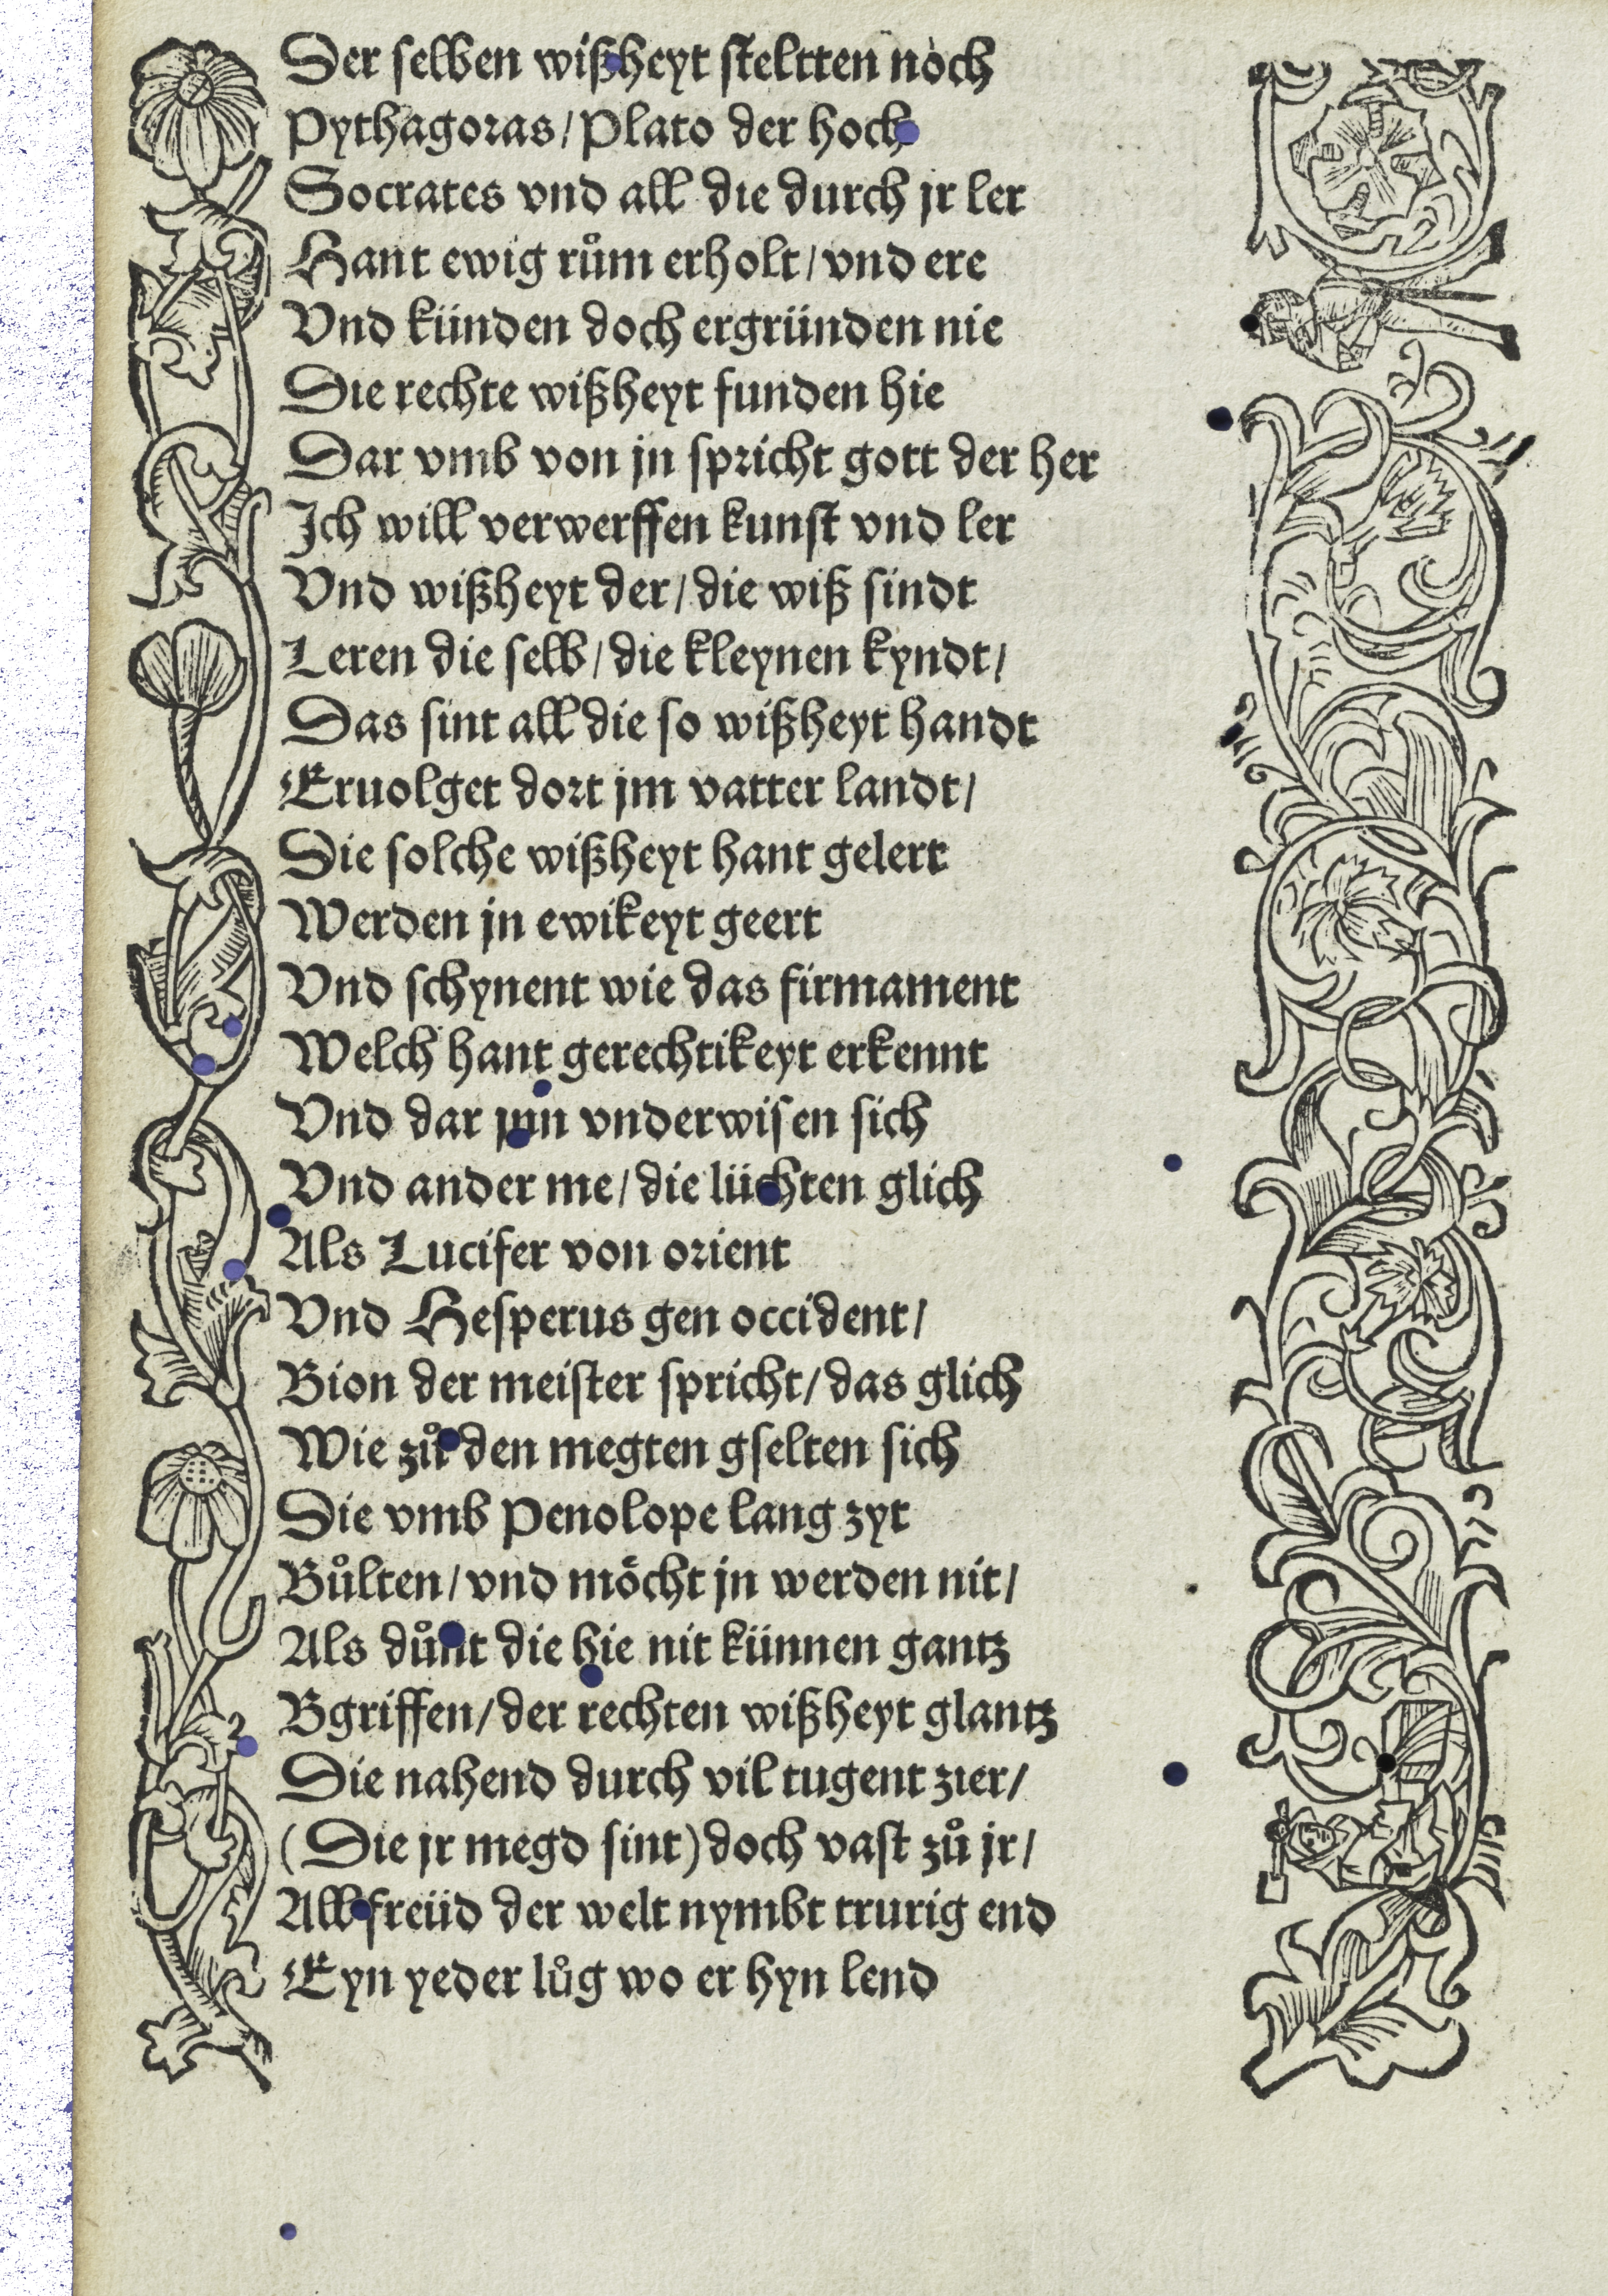 Der selben wißheyt steltten noch
Pythagoras/Plato der hoch
Socrates vnd all die durch jr ler
Hant ewig rům erholt/vnd ere
Vnd künden doch ergründen nie
Die rechte wißheyt funden hie
Dar vmb von jn spricht gott der her
Ich will verwerffen kunst vnd ler
Vnd wißheyt der/die wiß sindt
Leren die selb/die kleynen kyndt/
Das sint all die so wißheyt handt
Eruolget dort jm vatter landt/
Die solche wißheyt hant gelert
Werden jn ewikeyt geert
Vnd schynent wie das firmament
Welch hant gerechtikeyt erkennt
Vnd dar jnn vnderwisen sich
Vnd ander me/die lüchten glich
Als Lucifer von orient
Vnd Hesperus gen occident/
Bion der meister spricht/das glich
Wie zů den megten gselten sich
Die vmb Penolope lang zyt
Bůlten/vnd möcht jn werden nit/
Als důnt die hie nit künnen gantz
Bgriffen/der rechten wißheyt glantz
Die nahend durch vil tugent zier/
(Die jr megd sint)doch vast zů jr/
All freüd der welt nymbt trurig end
Eyn yeder lůg wo er hyn lend